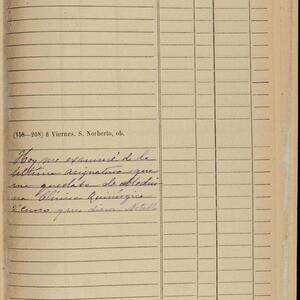 (158—208) 6 Viernes. S. Norberto, ob.
Hoy me examiné de la
última asignatura que
me quedaba de Medici
na Clínica Quirúrgica
2º curso